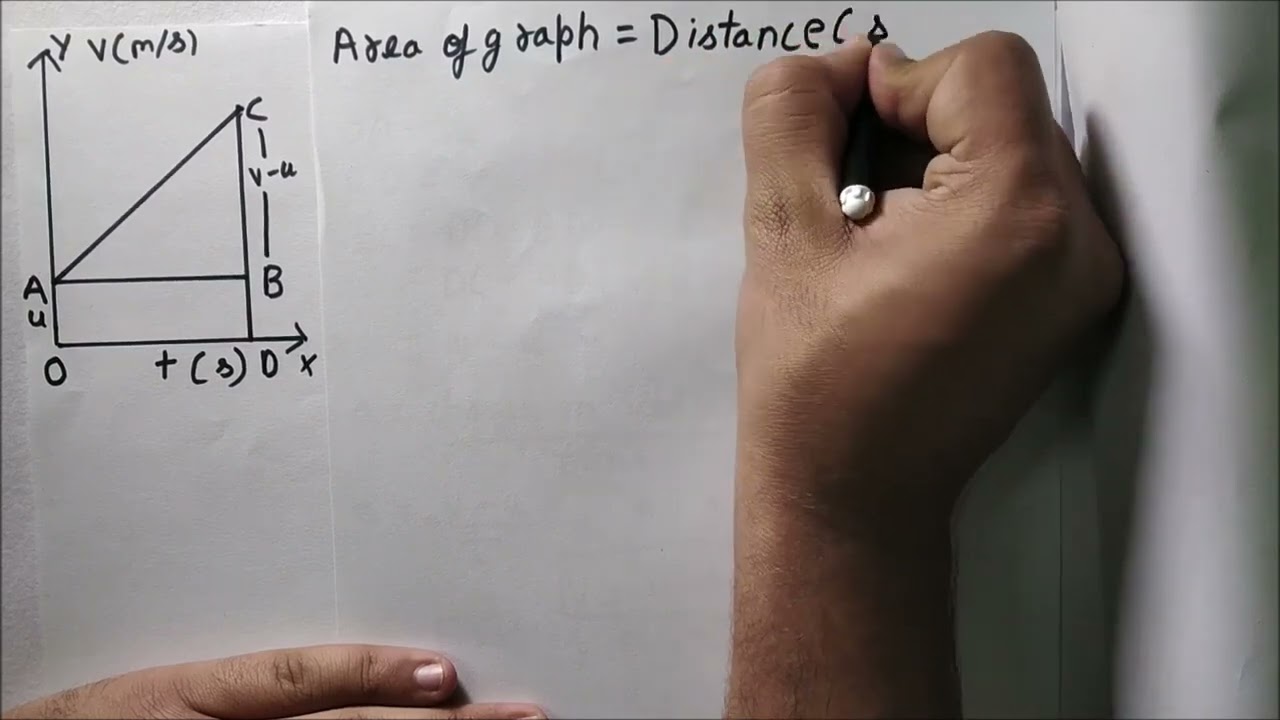 Area of graph = Distance(s
Y V(m/s)
C
v-u
A
B
u
O
t (s) D X